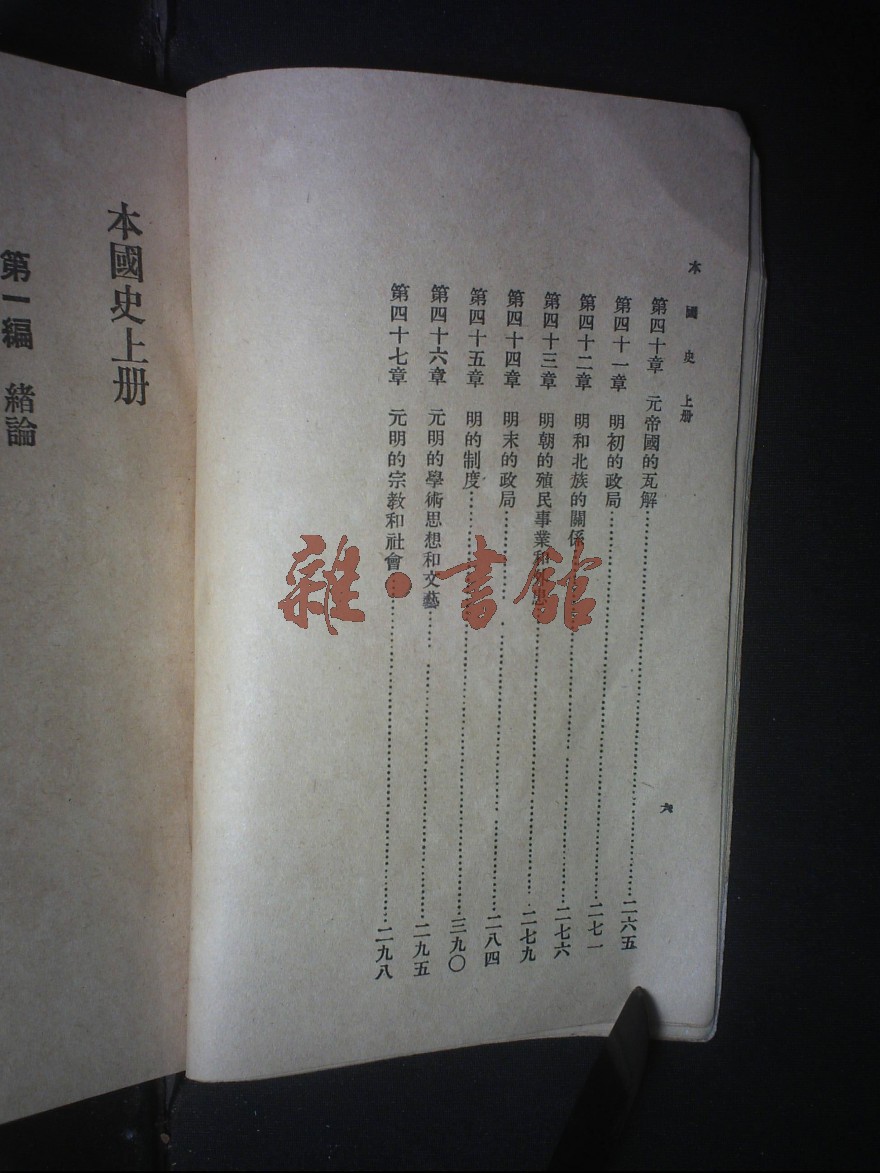 本國史 上册
第四十章 元帝國的瓦解……二六五
第四十一章 明初的政局……二七一
第四十二章 明和北族的關係……二七六
第四十三章 明朝的殖民事業和……二七九
第四十四章 明末的政局……二八四
第四十五章 明的制度……三九〇
第四十六章 元明的學術思想和文藝……二九五
第四十七章 元明的宗教和社會……二九八
六
本國史上册
第一編 緒論
雜·書館